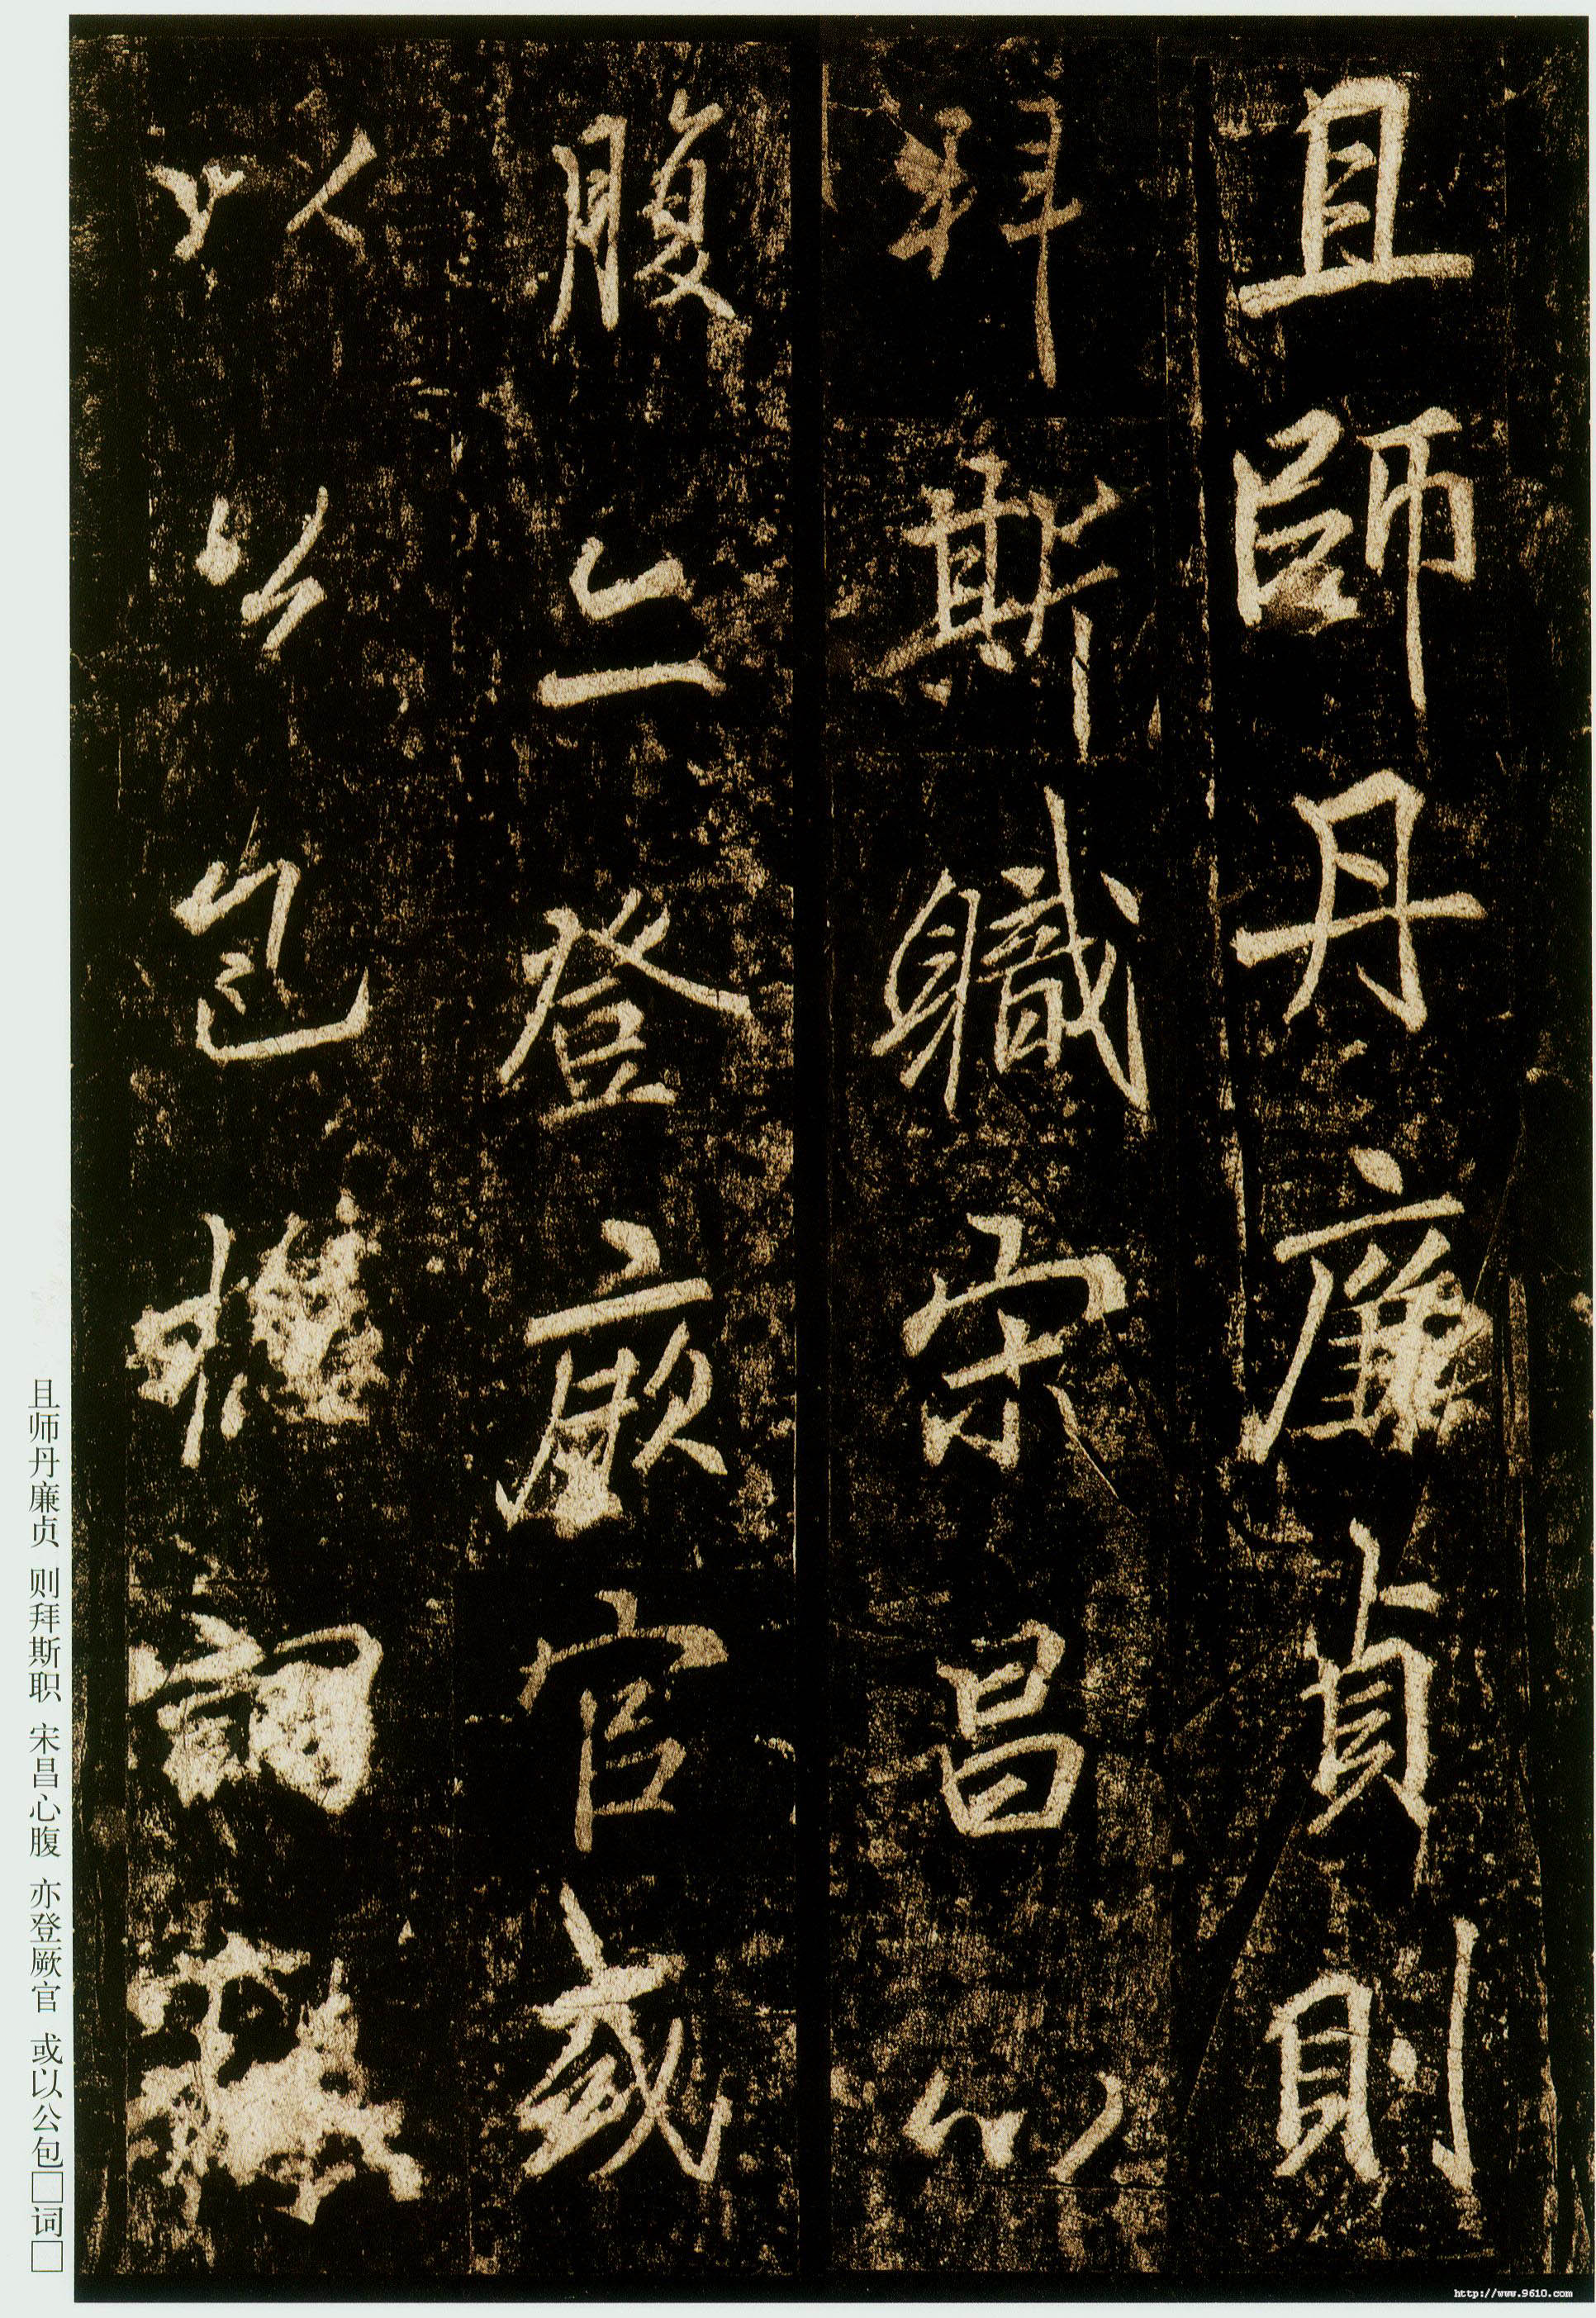 且師丹廉貞則
拜斯職宋昌心
腹亦登厥官或
以公包權詞
且师丹廉贞 则拜斯职 宋昌心腹 亦登厥官 或以公包□词□
http://www.9610.com